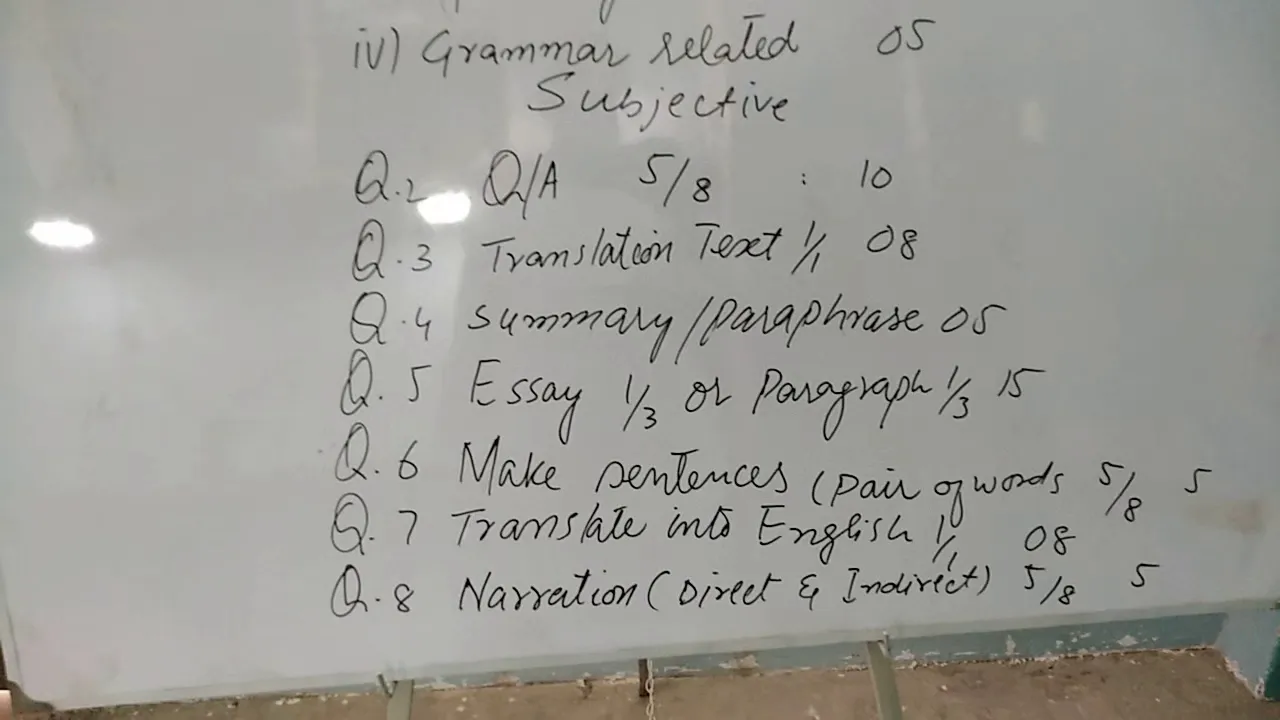 iv) Grammar related 05
Subjective
Q.2 Q/A 5/8 : 10
Q.3 Translation Text 1/1 08
Q.4 Summary/Paraphrase 05
Q.5 Essay 1/3 or Paragraph 1/3 15
Q.6 Make sentences (Pair of words 5/8 5
Q.7 Translate into English 1/1 08
Q.8 Narration (Direct & Indirect) 5/8 5